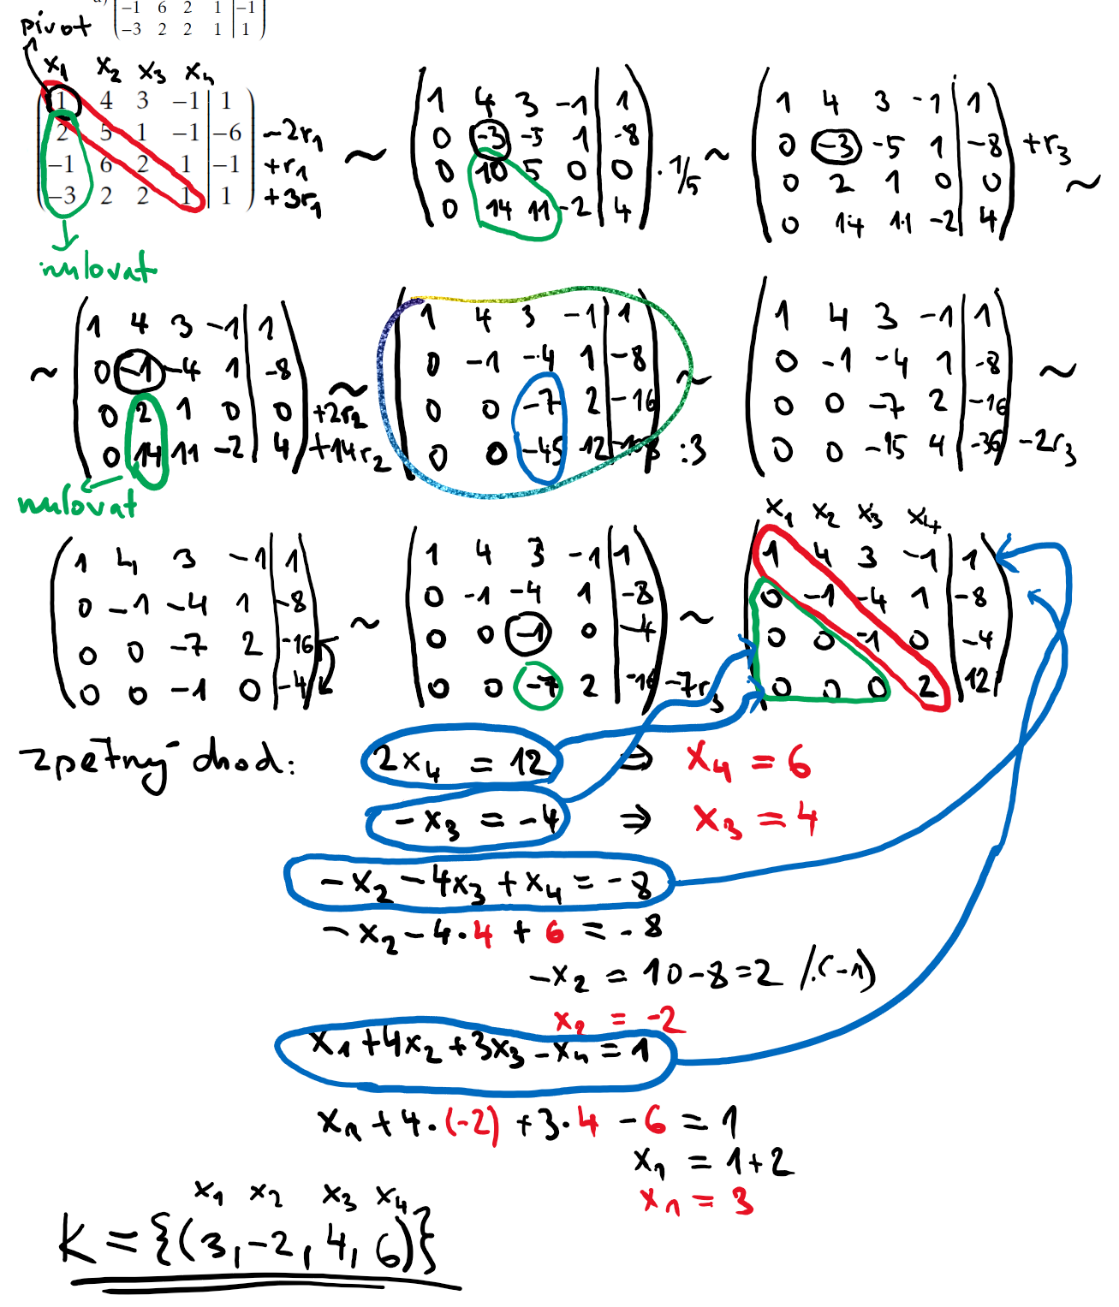 a) -1 6 2 1 | -1
pivot -3 2 2 1 | 1
x₁ x₂ x₃ x₄
1 4 3 -1 | 1
2 5 1 -1 | -6 -2r₁
-1 6 2 1 | -1 +r₁
-3 2 2 1 | 1 +3r₁ ~
nulovat
1 4 3 -1 | 1
0 -3 -5 1 | -8
0 10 5 0 | 0 · 1/5
0 14 11 -2 | 4 ~
1 4 3 -1 | 1
0 -3 -5 1 | -8 +r₃
0 2 1 0 | 0
0 14 11 -2 | 4 ~
~ 1 4 3 -1 | 1
0 -1 -4 1 | -8
0 2 1 0 | 0 +2r₂
0 14 11 -2 | 4 +14r₂ ~
nulovat
1 4 3 -1 | 1
0 -1 -4 1 | -8
0 0 -7 2 | -16
0 0 -45 12 | -108 :3 ~
1 4 3 -1 | 1
0 -1 -4 1 | -8
0 0 -7 2 | -16
0 0 -15 4 | -36 -2r₃ ~
1 4 3 -1 | 1
0 -1 -4 1 | -8
0 0 -7 2 | -16
0 0 -1 0 | -4 ~
1 4 3 -1 | 1
0 -1 -4 1 | -8
0 0 -1 0 | -4
0 0 -7 2 | -16 -7r₃ ~
x₁ x₂ x₃ x₄
1 4 3 -1 | 1
0 -1 -4 1 | -8
0 0 -1 0 | -4
0 0 0 2 | 12
zpětný chod: 2x₄ = 12 ⇒ x₄ = 6
-x₃ = -4 ⇒ x₃ = 4
-x₂ - 4x₃ + x₄ = -8
-x₂ - 4·4 + 6 = -8
-x₂ = 10 - 8 = 2 /·(-1)
x₂ = -2
x₁ + 4x₂ + 3x₃ - x₄ = 1
x₁ + 4·(-2) + 3·4 - 6 = 1
x₁ = 1 + 2
x₁ = 3
x₁ x₂ x₃ x₄
K = {(3, -2, 4, 6)}